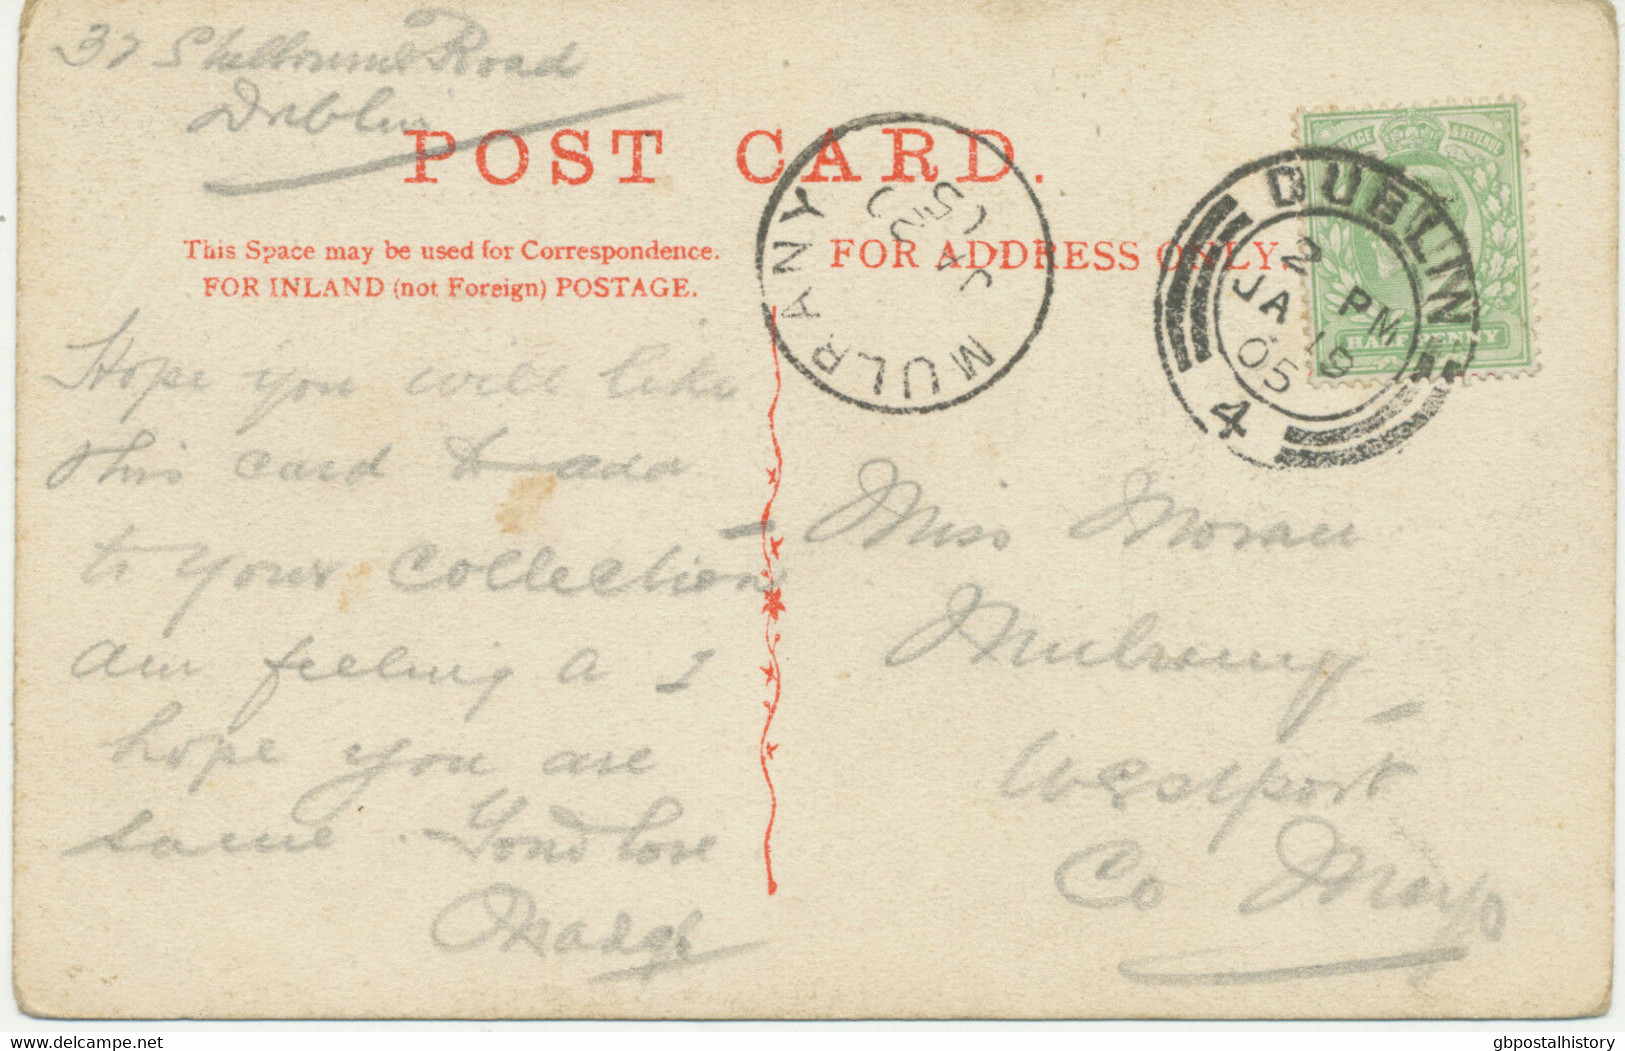 37 Shelbourne Road
Dublin
POST CARD.
This Space may be used for Correspondence.
FOR INLAND (not Foreign) POSTAGE.
FOR ADDRESS ONLY.
MULRANY
JA
05
DUBLIN
2 PM
JA 19
05
4
POSTAGE & REVENUE
HALF PENNY
Hope you will like
this card to add
to your collection
am feeling A 1
hope you are
same. Fond love
Madge
Miss Moran
Mulrany
Westport
Co Mayo
Delcampe.com
gbpostalhistory